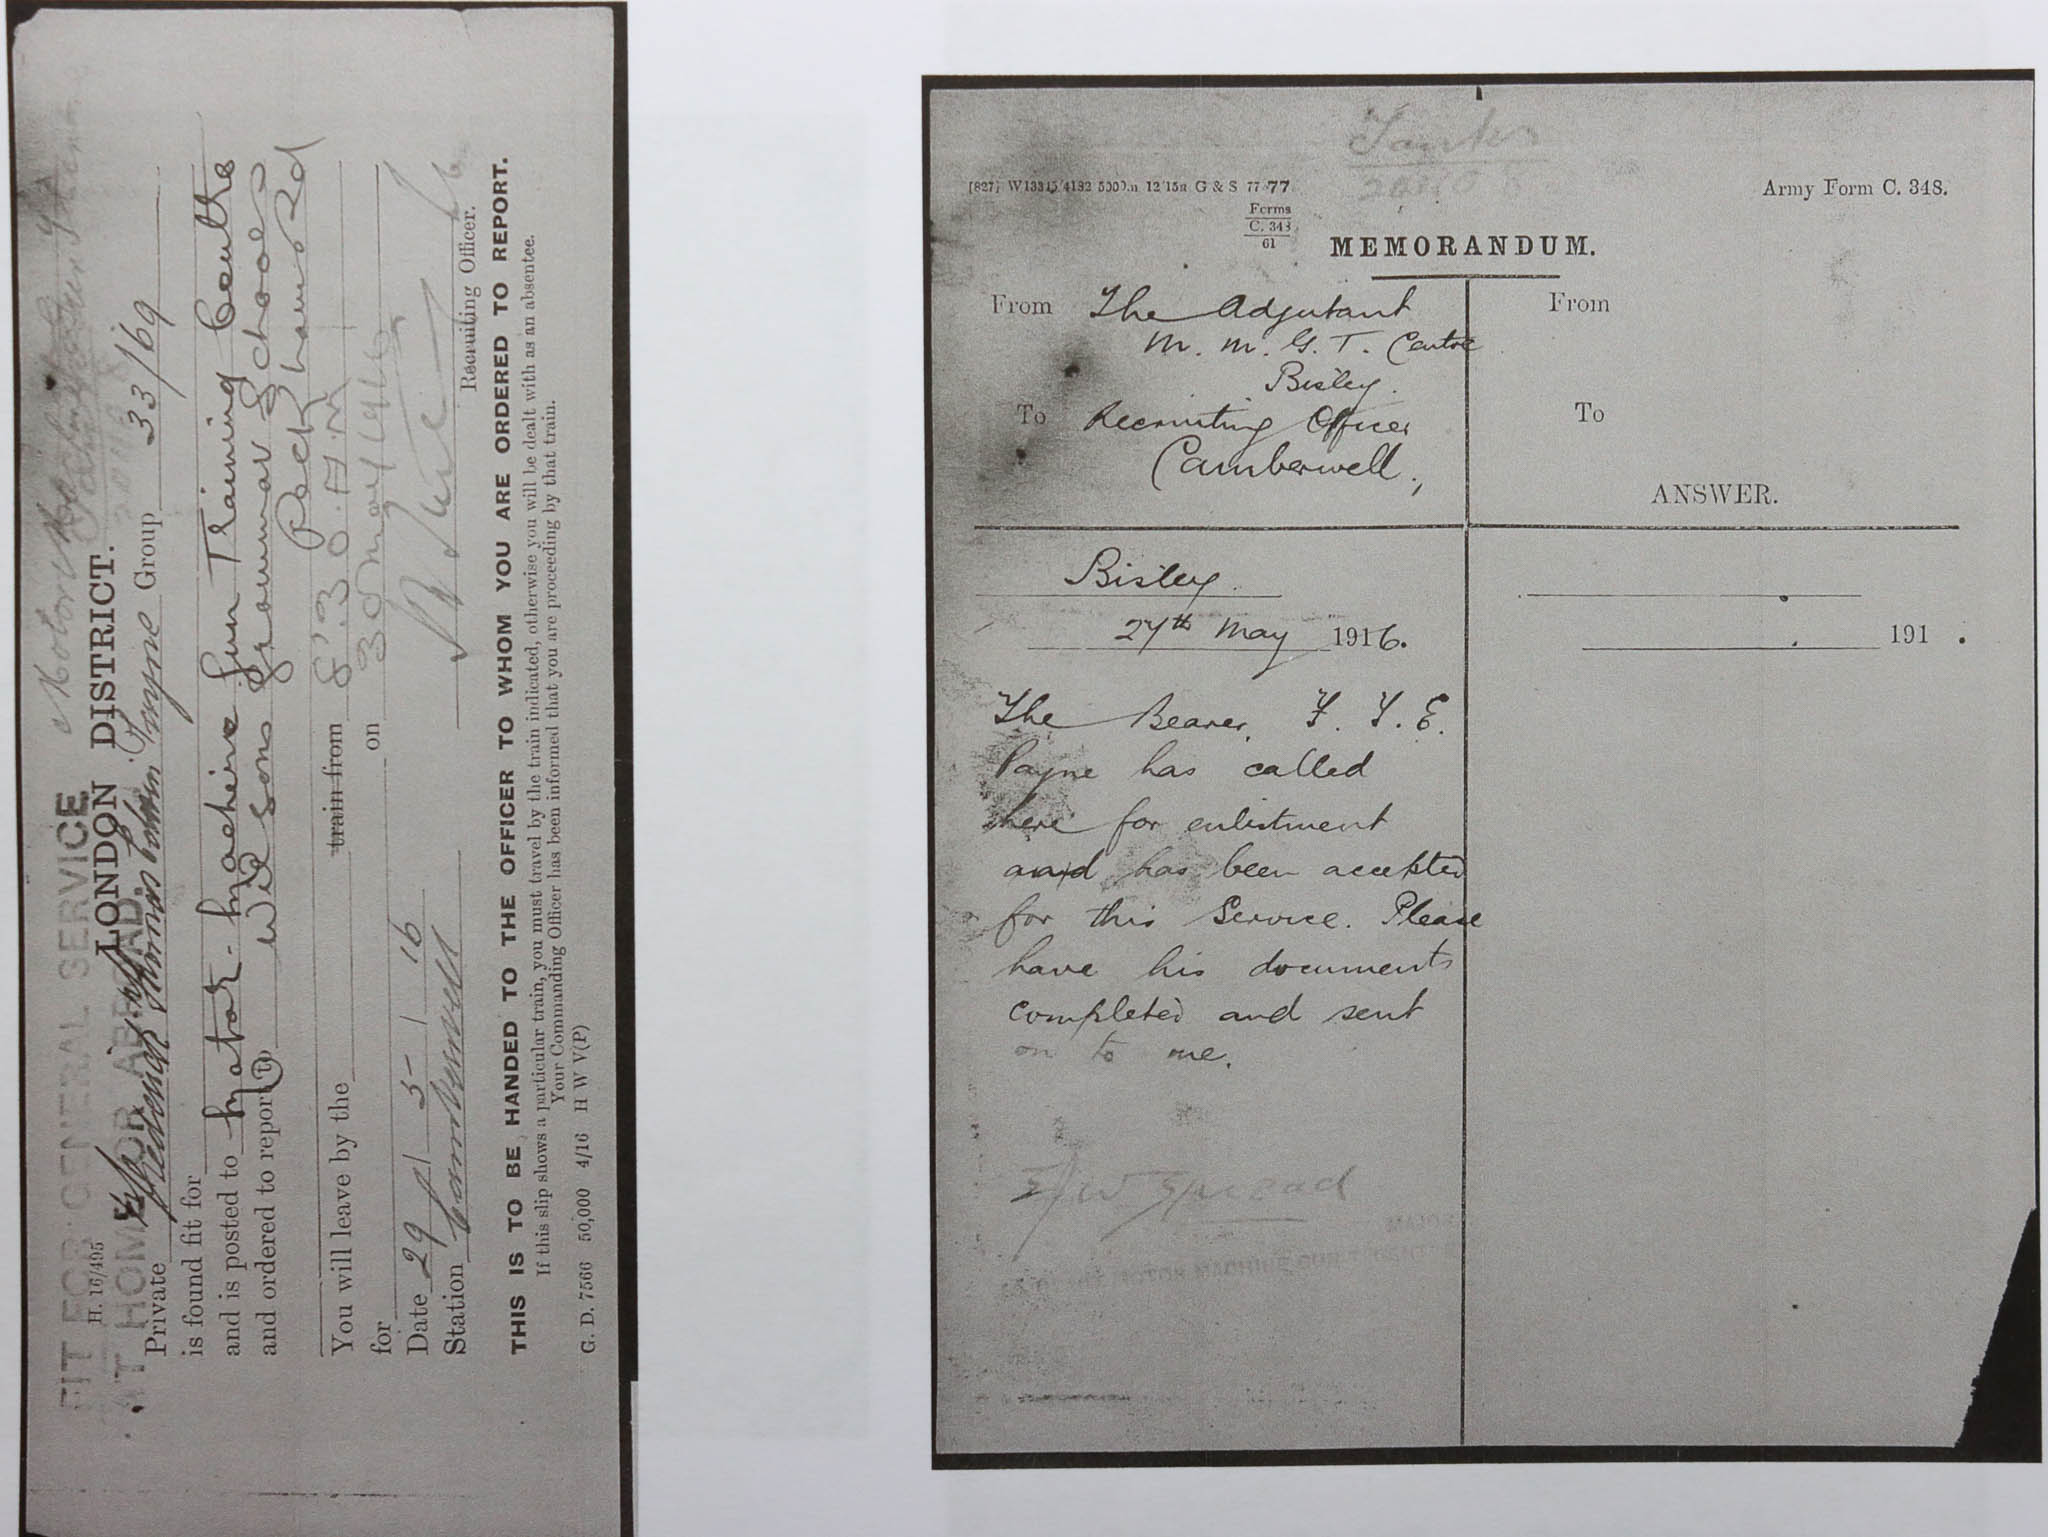 FIT FOR GENERAL SERVICE
AT HOME OR ABROAD.
H. 16/495
LONDON DISTRICT.
Private Frederick Thomas Payne Group 33/69
is found fit for
and is posted to Motor Machine Gun Training Centre
and ordered to report to Wilsons Grammar School
Peckham Rd
You will leave by the train from 8.30 A.M
for on 30 May 1916
Date 29 - 5 - 16
Station Camberwell
Recruiting Officer.
THIS IS TO BE HANDED TO THE OFFICER TO WHOM YOU ARE ORDERED TO REPORT.
If this slip shows a particular train, you must travel by the train indicated, otherwise you will be dealt with as an absentee.
Your Commanding Officer has been informed that you are proceeding by that train.
G. D. 7566 50,000 4/16 H W V(P)
Tanks
[827] W13315/4182 5000m 12/15a G & S 77 77 Army Form C. 348.
Forms
C. 348
61
MEMORANDUM.
From The Adjutant
M. M. G. T. Centre
Bisley.
To Recruiting Officer
Camberwell,
From
To
ANSWER.
Bisley.
27th May 1916.
191 .
The Bearer, F. T. E.
Payne has called
here for enlistment
and has been accepted
for this Service. Please
have his documents
completed and sent
on to me.
MAJOR
MOTOR MACHINE GUN